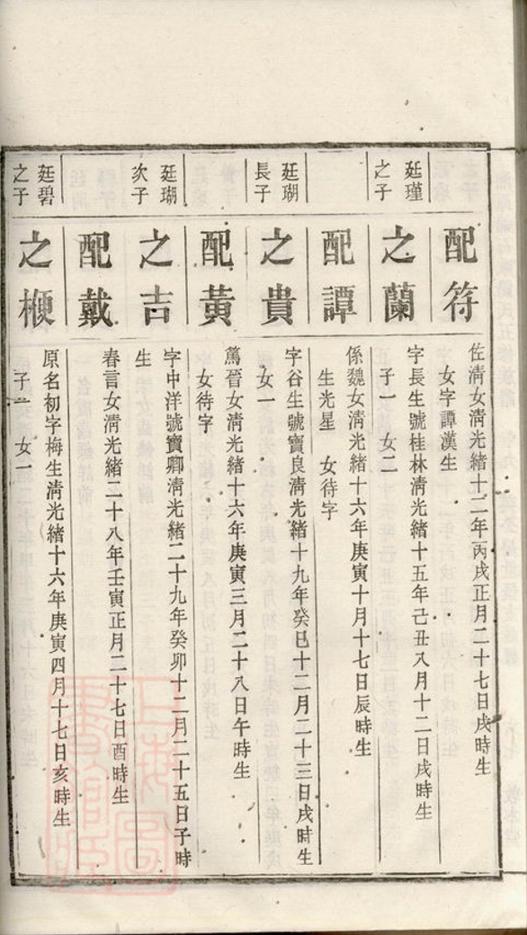 配符
佐淸女淸光緖十二年丙戌正月二十一日戌時生
女字譚漢生
廷瑾
之子
之蘭
字長生號桂林淸光緖十五年己丑八月十二日戌時生
子一 女二
配譚
係魏女淸光緖十六年庚寅十月十七日辰時生
生光星 女待字
廷瑚
長子
之貴
字谷生號寶良淸光緖十九年癸巳十二月二十三日戌時生
女一
配黃
篤晉女淸光緖十六年庚寅三月二十八日午時生
女待字
廷瑚
次子
之吉
字中洋號寶卿淸光緖二十九年癸卯十二月二十五日子時
生
配戴
春言女淸光緖二十八年壬寅正月二十七日酉時生
廷碧
之子
之楩
原名初字梅生淸光緖十六年庚寅四月十七日亥時生
子一 女一